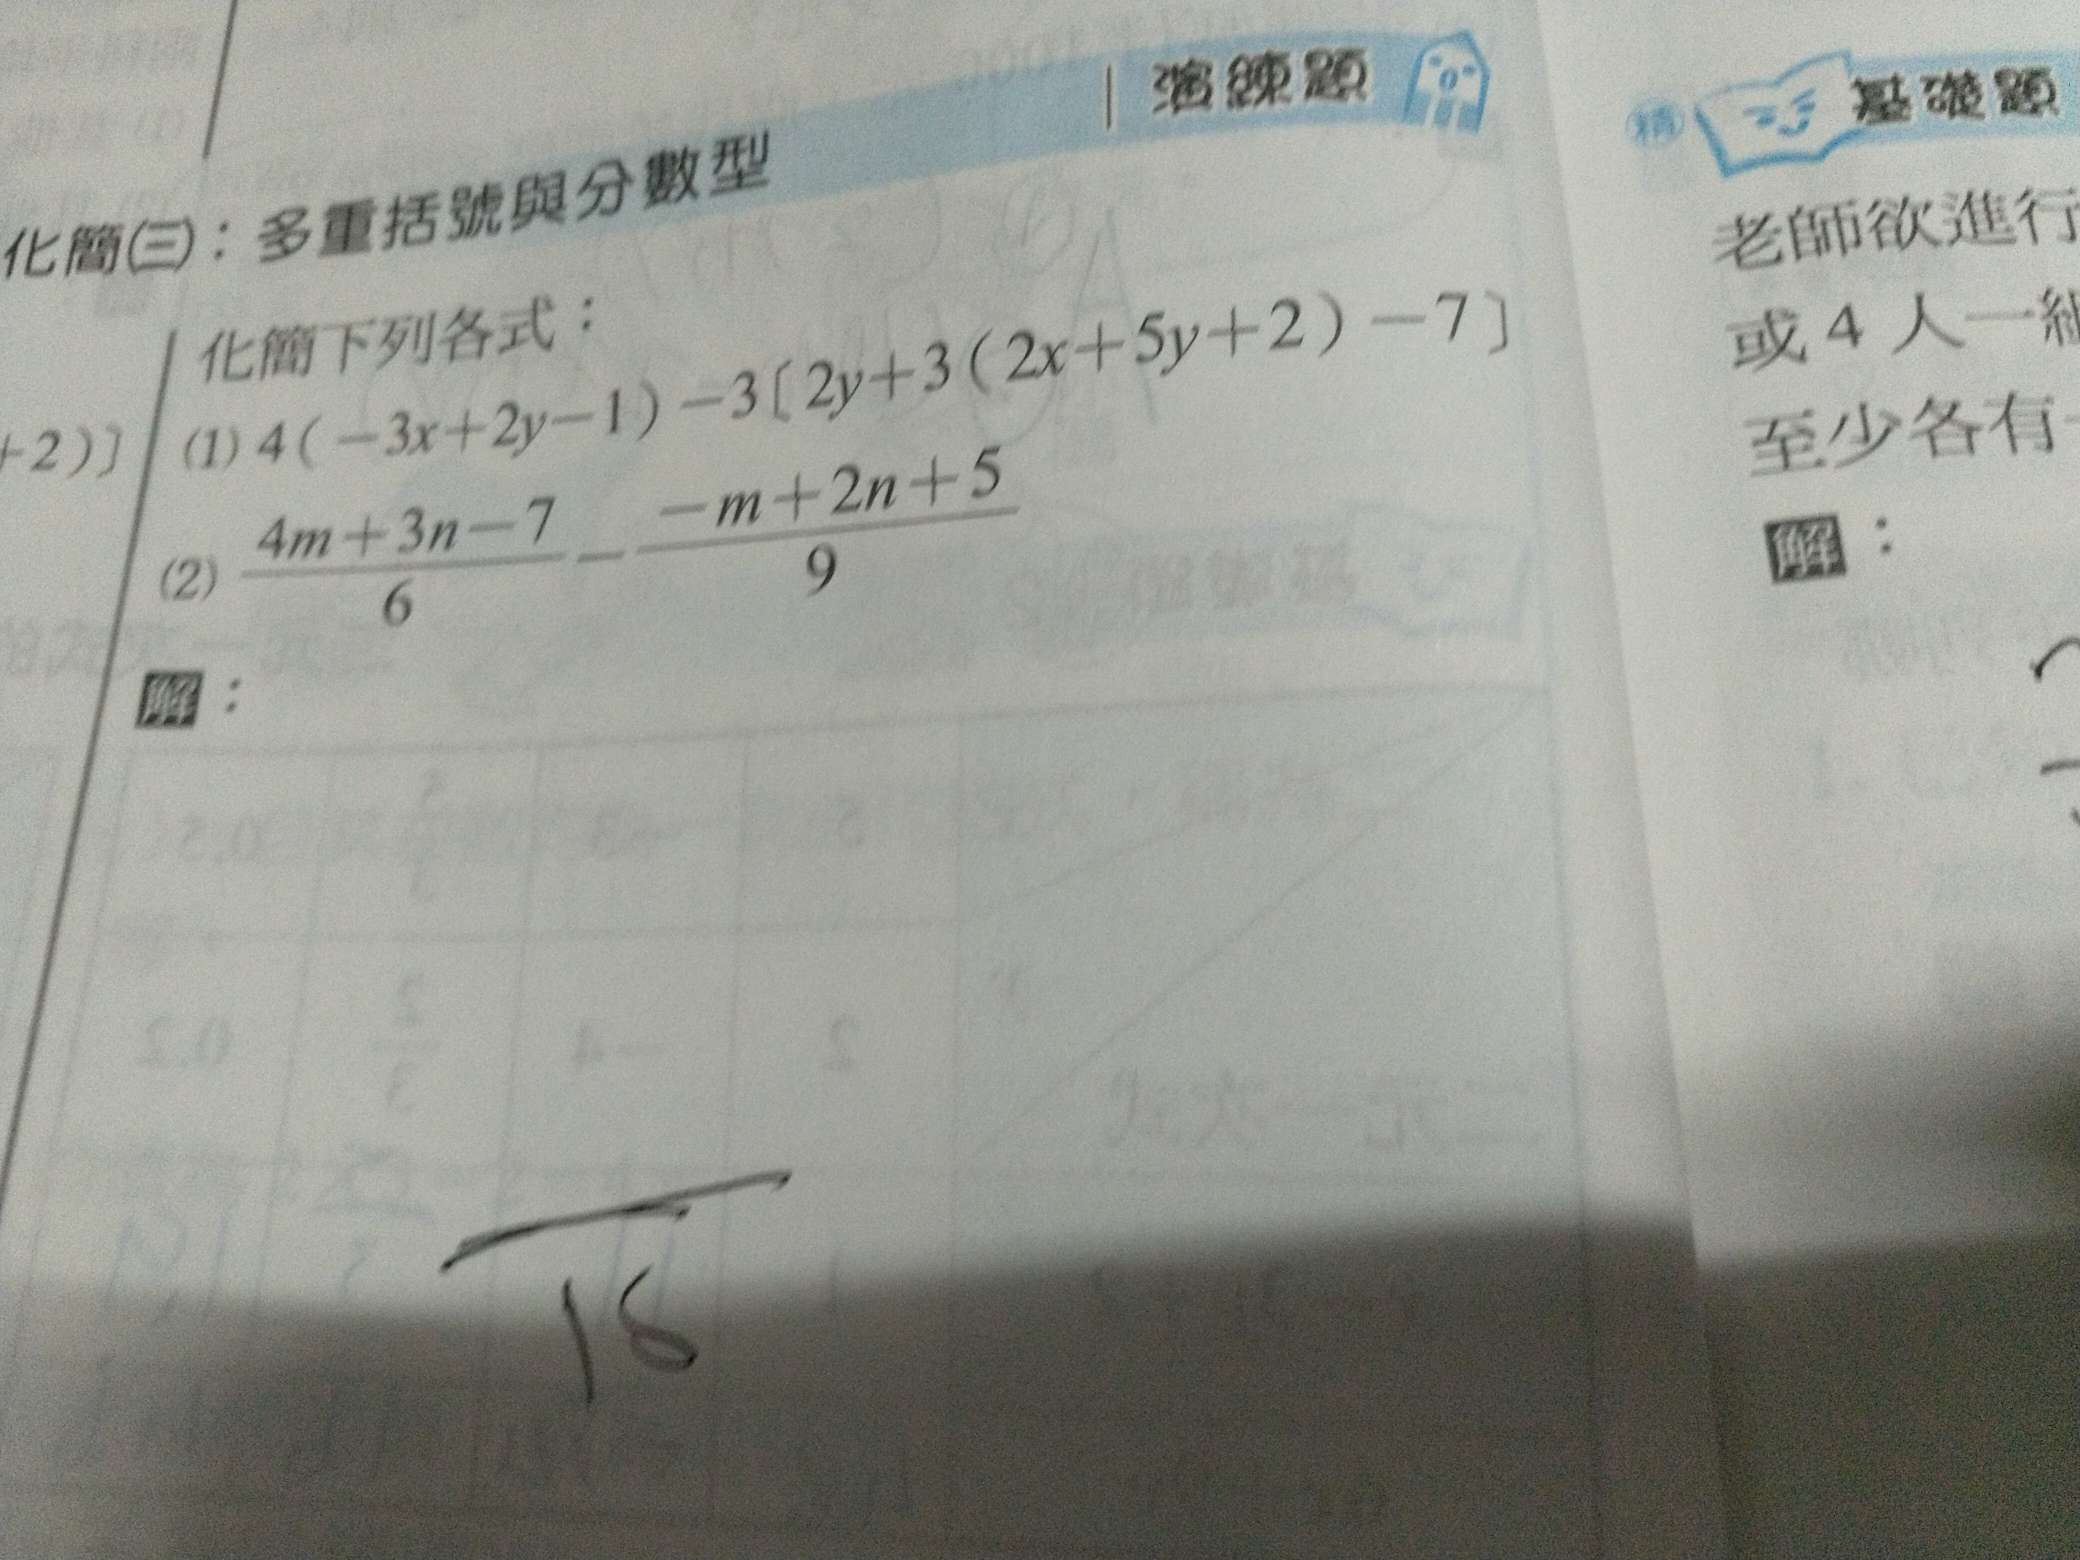 演練題
化簡㈢：多重括號與分數型
化簡下列各式：
(1) 4(－3x＋2y－1)－3〔2y＋3(2x＋5y＋2)－7〕
(2) \frac{4m＋3n－7}{6}－\frac{－m＋2n＋5}{9}
解：
18
＋2)〕
精 基礎題
老師欲進行
或 4 人一組
至少各有一
解：